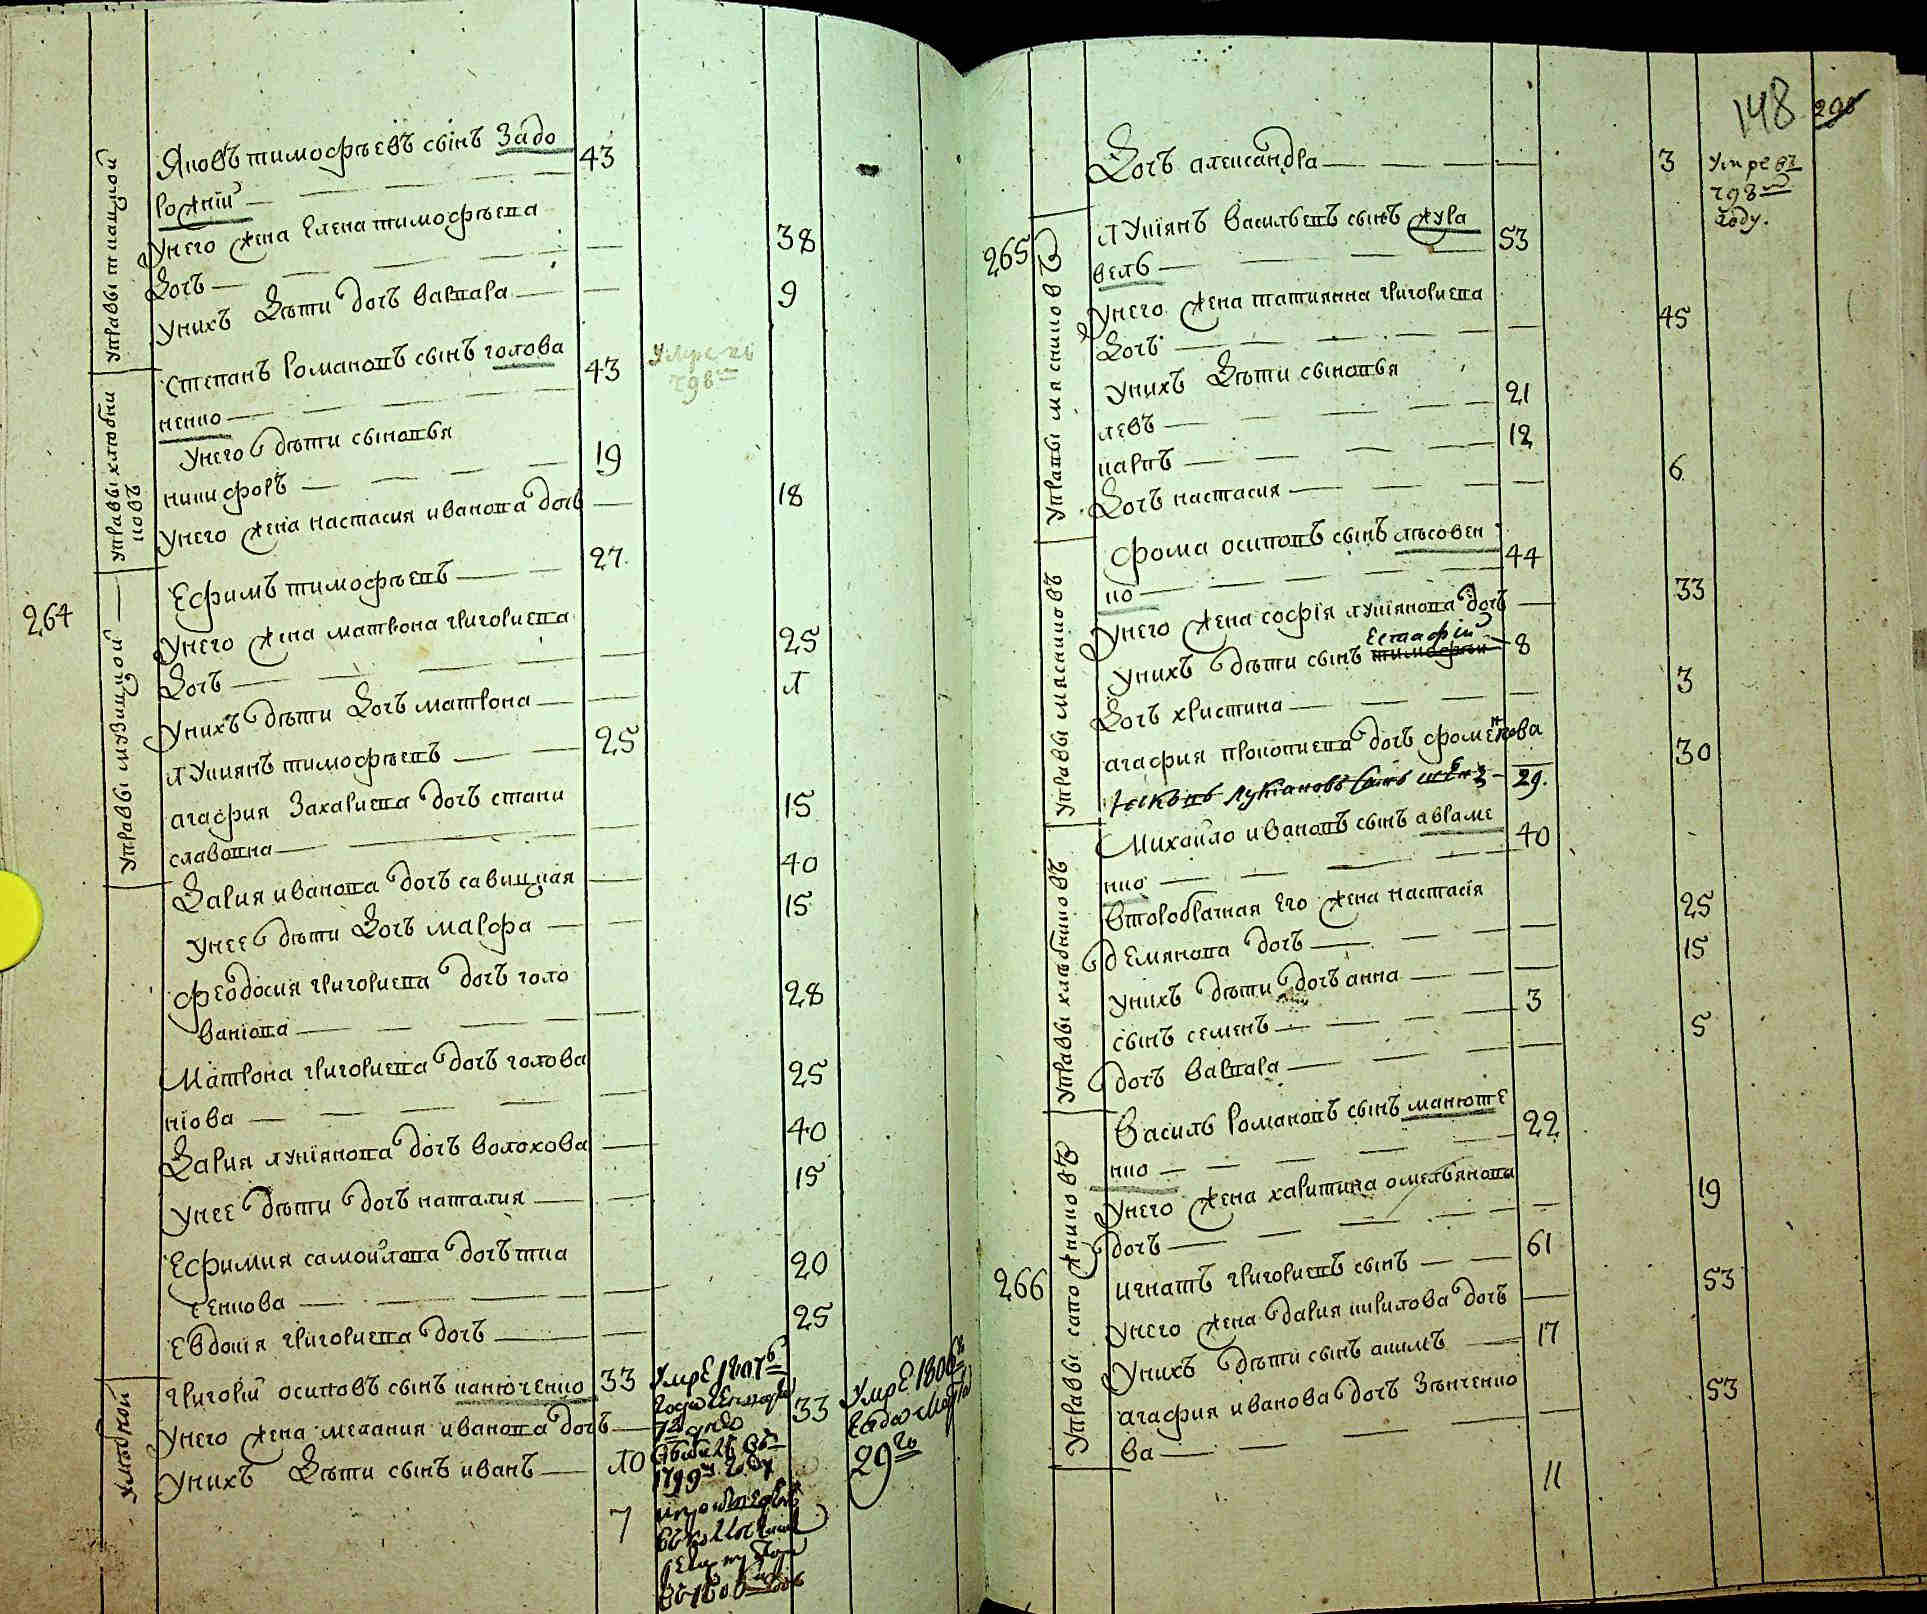 Яковъ тимофѣевъ сынъ Задо
рожній 43
Унего жена Елена тимофѣева
Дочь 38
Унихъ Дѣти дочь варвара 9
Управы ткацкой
Степанъ Романовъ сынъ голова
ненко 43
Умре
798
Унего дѣти сыновья
никифоръ 19
Унего жена настасия иванова дочь 18
Управы хлѣбни
ковъ
264
Ефимъ тимофѣевъ 27
Унего жена матрона григориева
Дочь 25
Унихъ дѣти Дочь матрона
Лукиянъ тимофѣевъ 25
агафия Захариева дочь стани
славовна 15
Управы музицкой
Дария иванова дочь савицкая 40
Унее дѣти Дочь марфа 15
Феодосия григориева дочь голо
ваніова 28
Матрона григориева дочь голова
ніова 25
Дария лукіянова дочь волохова 40
Унее дѣти дочь наталия 15
Ефимия самойлова дочь тка
ченкова 20
Евдокія григориева дочь 25
Григорій осиповъ сынъ панюченко 33
Унего жена мелания иванова дочь 33
Унихъ Дѣти сынъ иванъ 10
7
Умре 1807
Умре 1806
29го
148
Дочь александра 3
Умре въ
798м
Году.
265
Лукіянъ Васильевъ сынъ жура
вель 53
Унего жена татиянна григориева
Дочь 45
Унихъ Дѣти сыновья
левъ 21
карпъ 12
Дочь настасия 6
Управы мясниковъ
Фома осиповъ сынъ лѣсовен
ко 44
Унего жена софія лукіянова дочь 33
Унихъ дѣти сынъ Естафій 8
Дочь христина 3
агафия прокопиева дочь фоменкова 30
29.
Управы мясниковъ
Михайло ивановъ сынъ авраме
нко 40
Второбрачная Его жена настасія
демянова дочь 25
Унихъ дѣти дочь анна 15
сынъ семенъ 3
дочь варвара 5
Управы хлѣбниковъ
Василь Романовъ сынъ манюте
нко 22
Унего жена харитина омельянова
дочь 19
266
игнатъ григориевъ сынъ 61
Унего жена дария кирилова дочь 53
Унихъ дѣти сынъ акимъ 17
агафия иванова дочь Зѣнченко
ва 53
Управы сапожниковъ
11